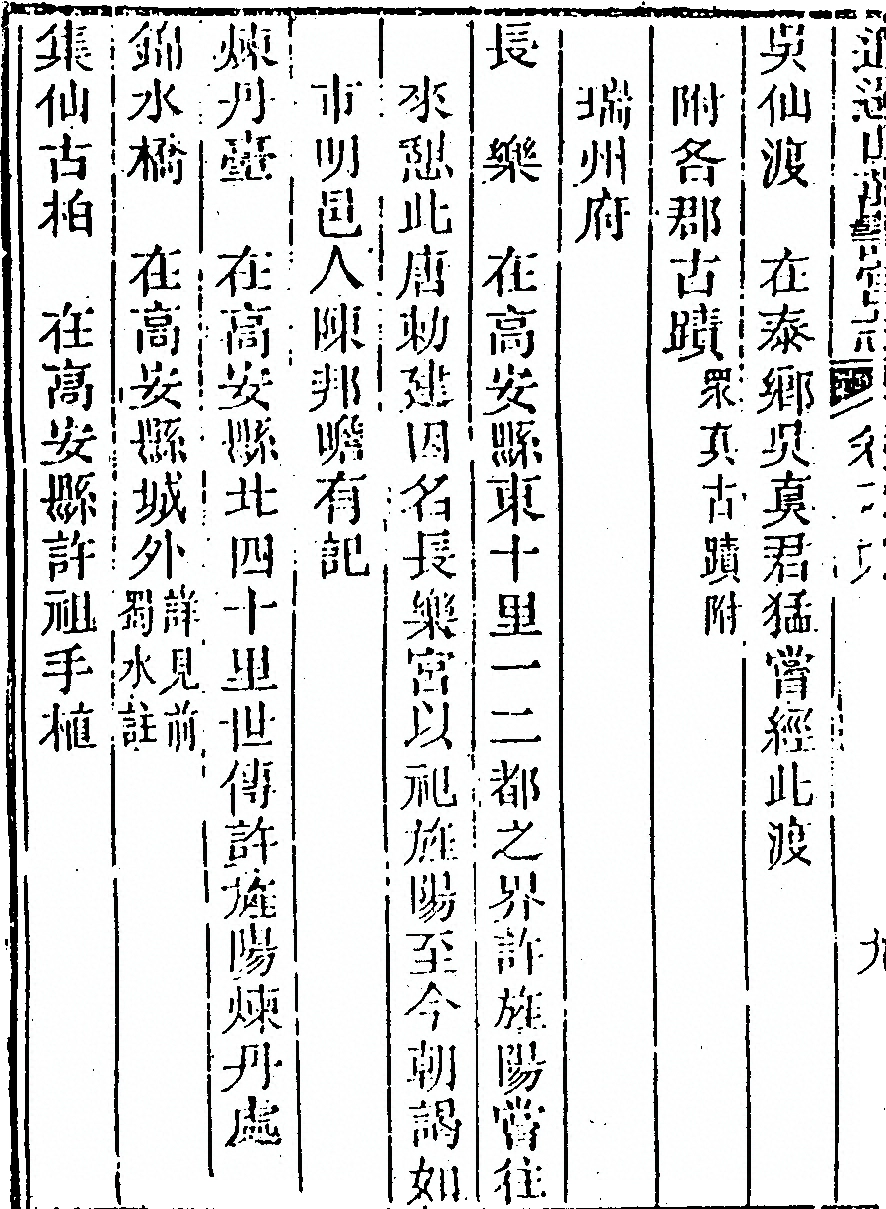 逍遙山萬壽宮志
吳仙渡　在泰鄉吳真君猛嘗經此渡
附各郡古蹟 眾真古蹟附
瑞州府
長　樂　在高安縣東十里一二都之界許旌陽嘗往
來憇此唐勅建因名長樂宮以祀旌陽至今朝謁如
市明邑人陳邦瞻有記
煉丹臺　在高安縣北四十里世傳許旌陽煉丹處
錦水橋　在高安縣城外 詳見前蜀水註
集仙古柏　在高安縣許祖手植